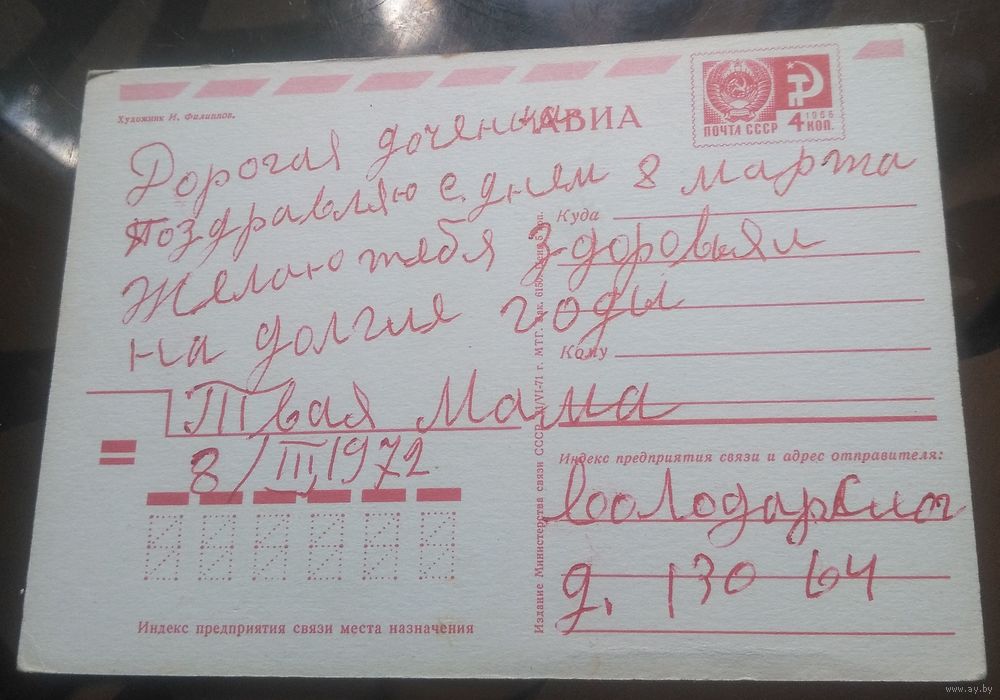 Художник И. Филиппов.
АВИА
ПОЧТА СССР
1966
4 КОП.
Дорогая доченька
Поздравляю с днем 8 марта
Желаю тебя здоровьял
на долгия годы
Твая Мама
8/III 1972
Куда
Кому
Индекс предприятия связи и адрес отправителя:
д. 130 64
Индекс предприятия связи места назначения
Издание Министерства связи СССР
www.ay.by